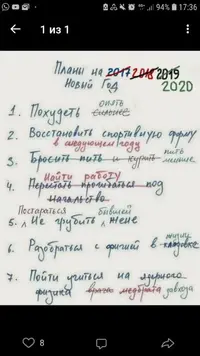 94% 17:36
1 из 1
Планы на 2017 2018 2019
Новый Год 2020
опять
1. Похудеть сильнее
2. Восстановить спортивную форму
в следующем году
пить
3. Бросить пить и курить меньше
Найти работу
4. Перестать прогибаться под
начальство
Постараться бывшей
5. Не грубить жене
жизни
6. Разобраться с фигнёй в кладовке
7. Пойти учиться на ядерного
физика врача медбрата завхоза
8